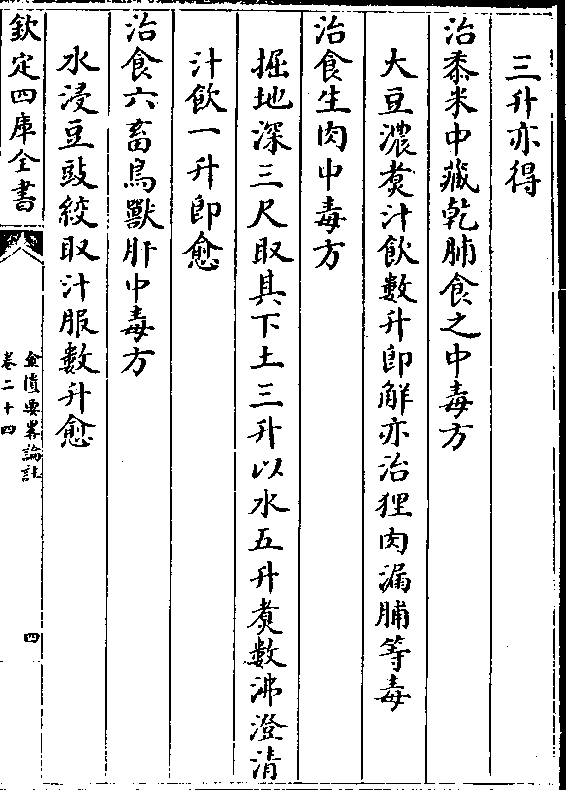 三升亦得
治黍米中藏乾脯食之中毒方
大豆濃煑汁飲數升即解亦治狸肉漏脯等毒
治食生肉中毒方
掘地深三尺取其下土三升以水五升煑數沸澄清
汁飲一升即愈
治食六畜鳥獸肝中毒方
水浸豆豉絞取汁服數升愈
欽定四庫全書
金匱要畧論註
卷二十四
四